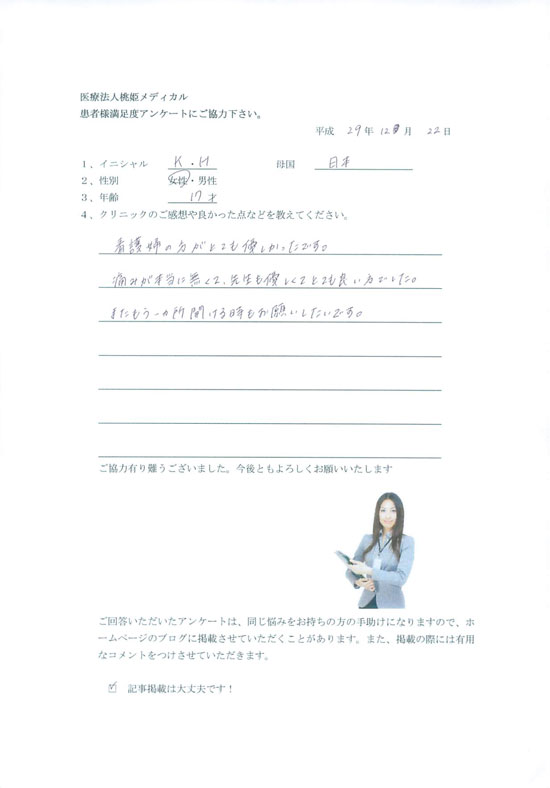 医療法人桃姫メディカル
患者様満足度アンケートにご協力下さい。
平成 29年 12月 22日
1、イニシャル K・H 母国 日本
2、性別 女性・男性
3、年齢 17才
4、クリニックのご感想や良かった点などを教えてください。
看護婦の方がとても優しかったです。
痛みが本当に無くて、先生も優しくてとても良い方でした。
またもう一カ所開ける時もお願いしたいです。
ご協力有り難うございました。今後ともよろしくお願いいたします
ご回答いただいたアンケートは、同じ悩みをお持ちの方の手助けになりますので、ホ
ームページのブログに掲載させていただくことがあります。また、掲載の際には有用
なコメントをつけさせていただきます。
☑ 記事掲載は大丈夫です！